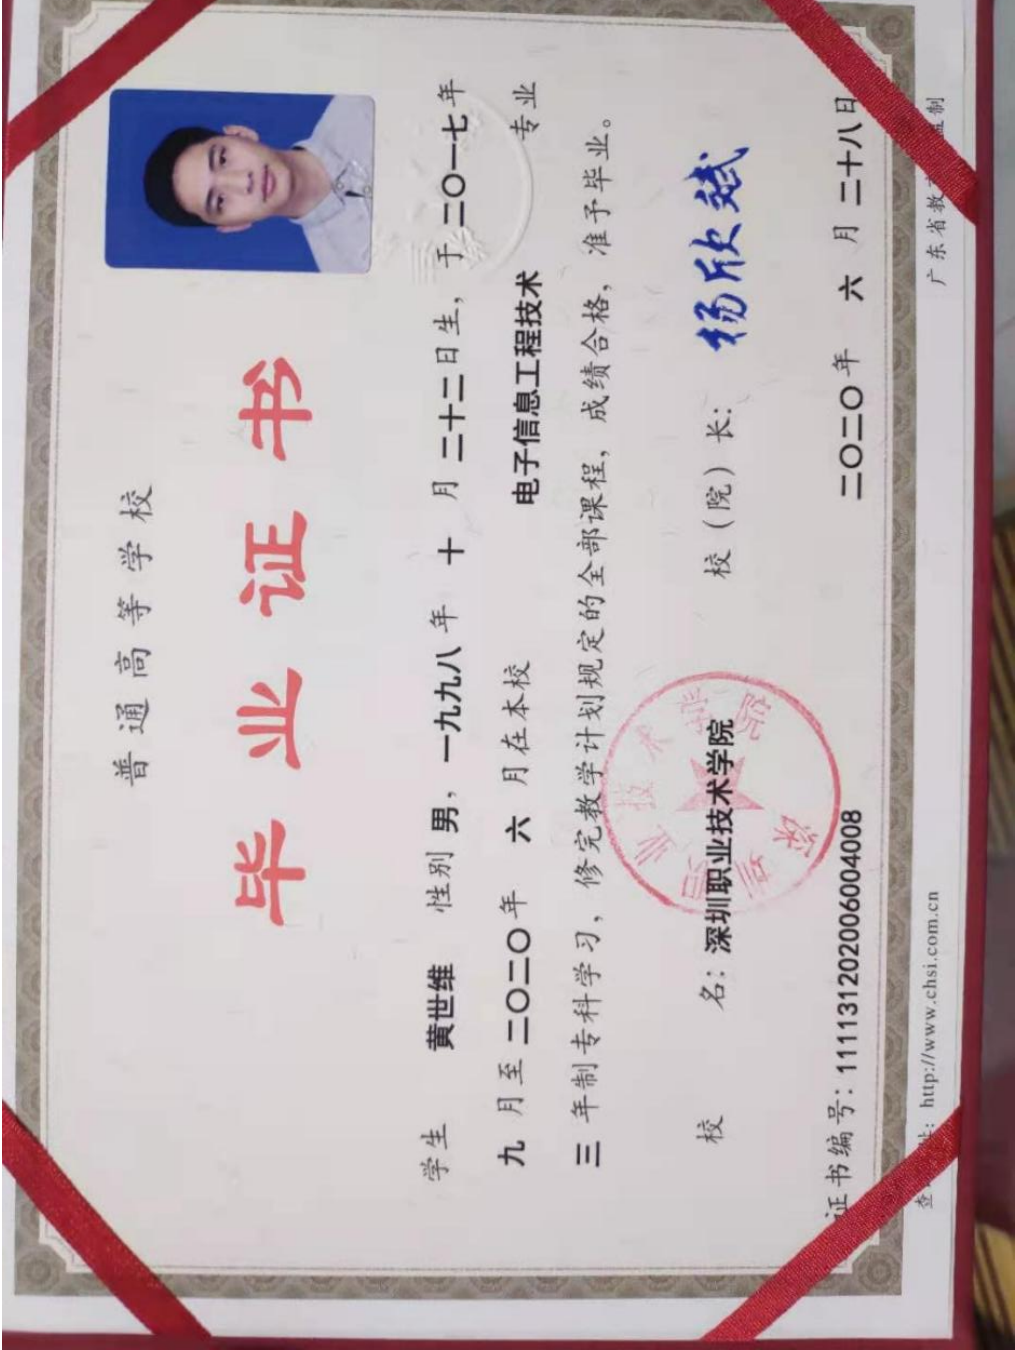 普通高等学校
毕业证书
学生 黄世维 性别 男，一九九八年 十 月 二十二日生，于 二〇一七年
九 月至 二〇二〇年 六 月在本校 电子信息工程技术 专业
三 年制专科学习，修完教学计划规定的全部课程，成绩合格，准予毕业。
校 名：深圳职业技术学院 校（院）长： 杨欣斌
深圳职业技术学院
证书编号：111131202006004008 二〇二〇年 六 月 二十八日
查 址：http://www.chsi.com.cn 广东省教 监制